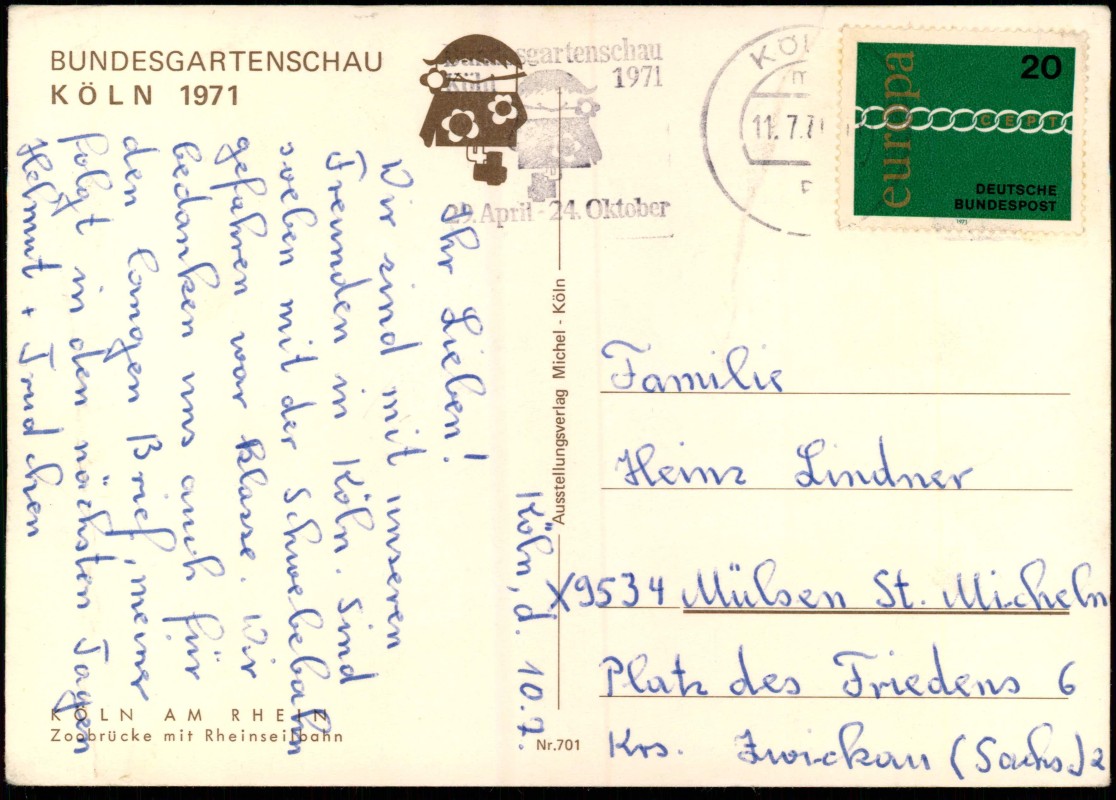 BUNDESGARTENSCHAU
KÖLN 1971
Bundesgartenschau
Köln 1971
29. April - 24. Oktober
KÖL
11.7.71
europa
20
CEPT
DEUTSCHE
BUNDESPOST
1971
Köln, d. 10.7.
Ihr Lieben!
Wir sind mit unseren
Freunden in Köln. Sind
soeben mit der Schwebebahn
gefahren war klasse. Wir
bedanken uns auch für
den langen Brief, meiner
folgt in den nächsten Tagen
Helmut + Trudchen
Ausstellungsverlag Michel - Köln
Familie
Heinz Lindner
X9534 Mülsen St. Micheln
Platz des Friedens 6
Krs. Zwickau (Sachs.) 2
KÖLN AM RHEIN
Zoobrücke mit Rheinseilbahn
Nr. 701